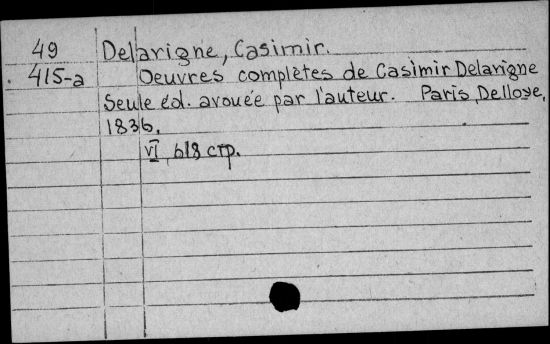 49 Delavigne, Casimir.
415-a Oeuvres complètes de Casimir Delavigne
Seule éd. avouée par l'auteur. Paris, Delloye,
1836.
VI, 618 стр.